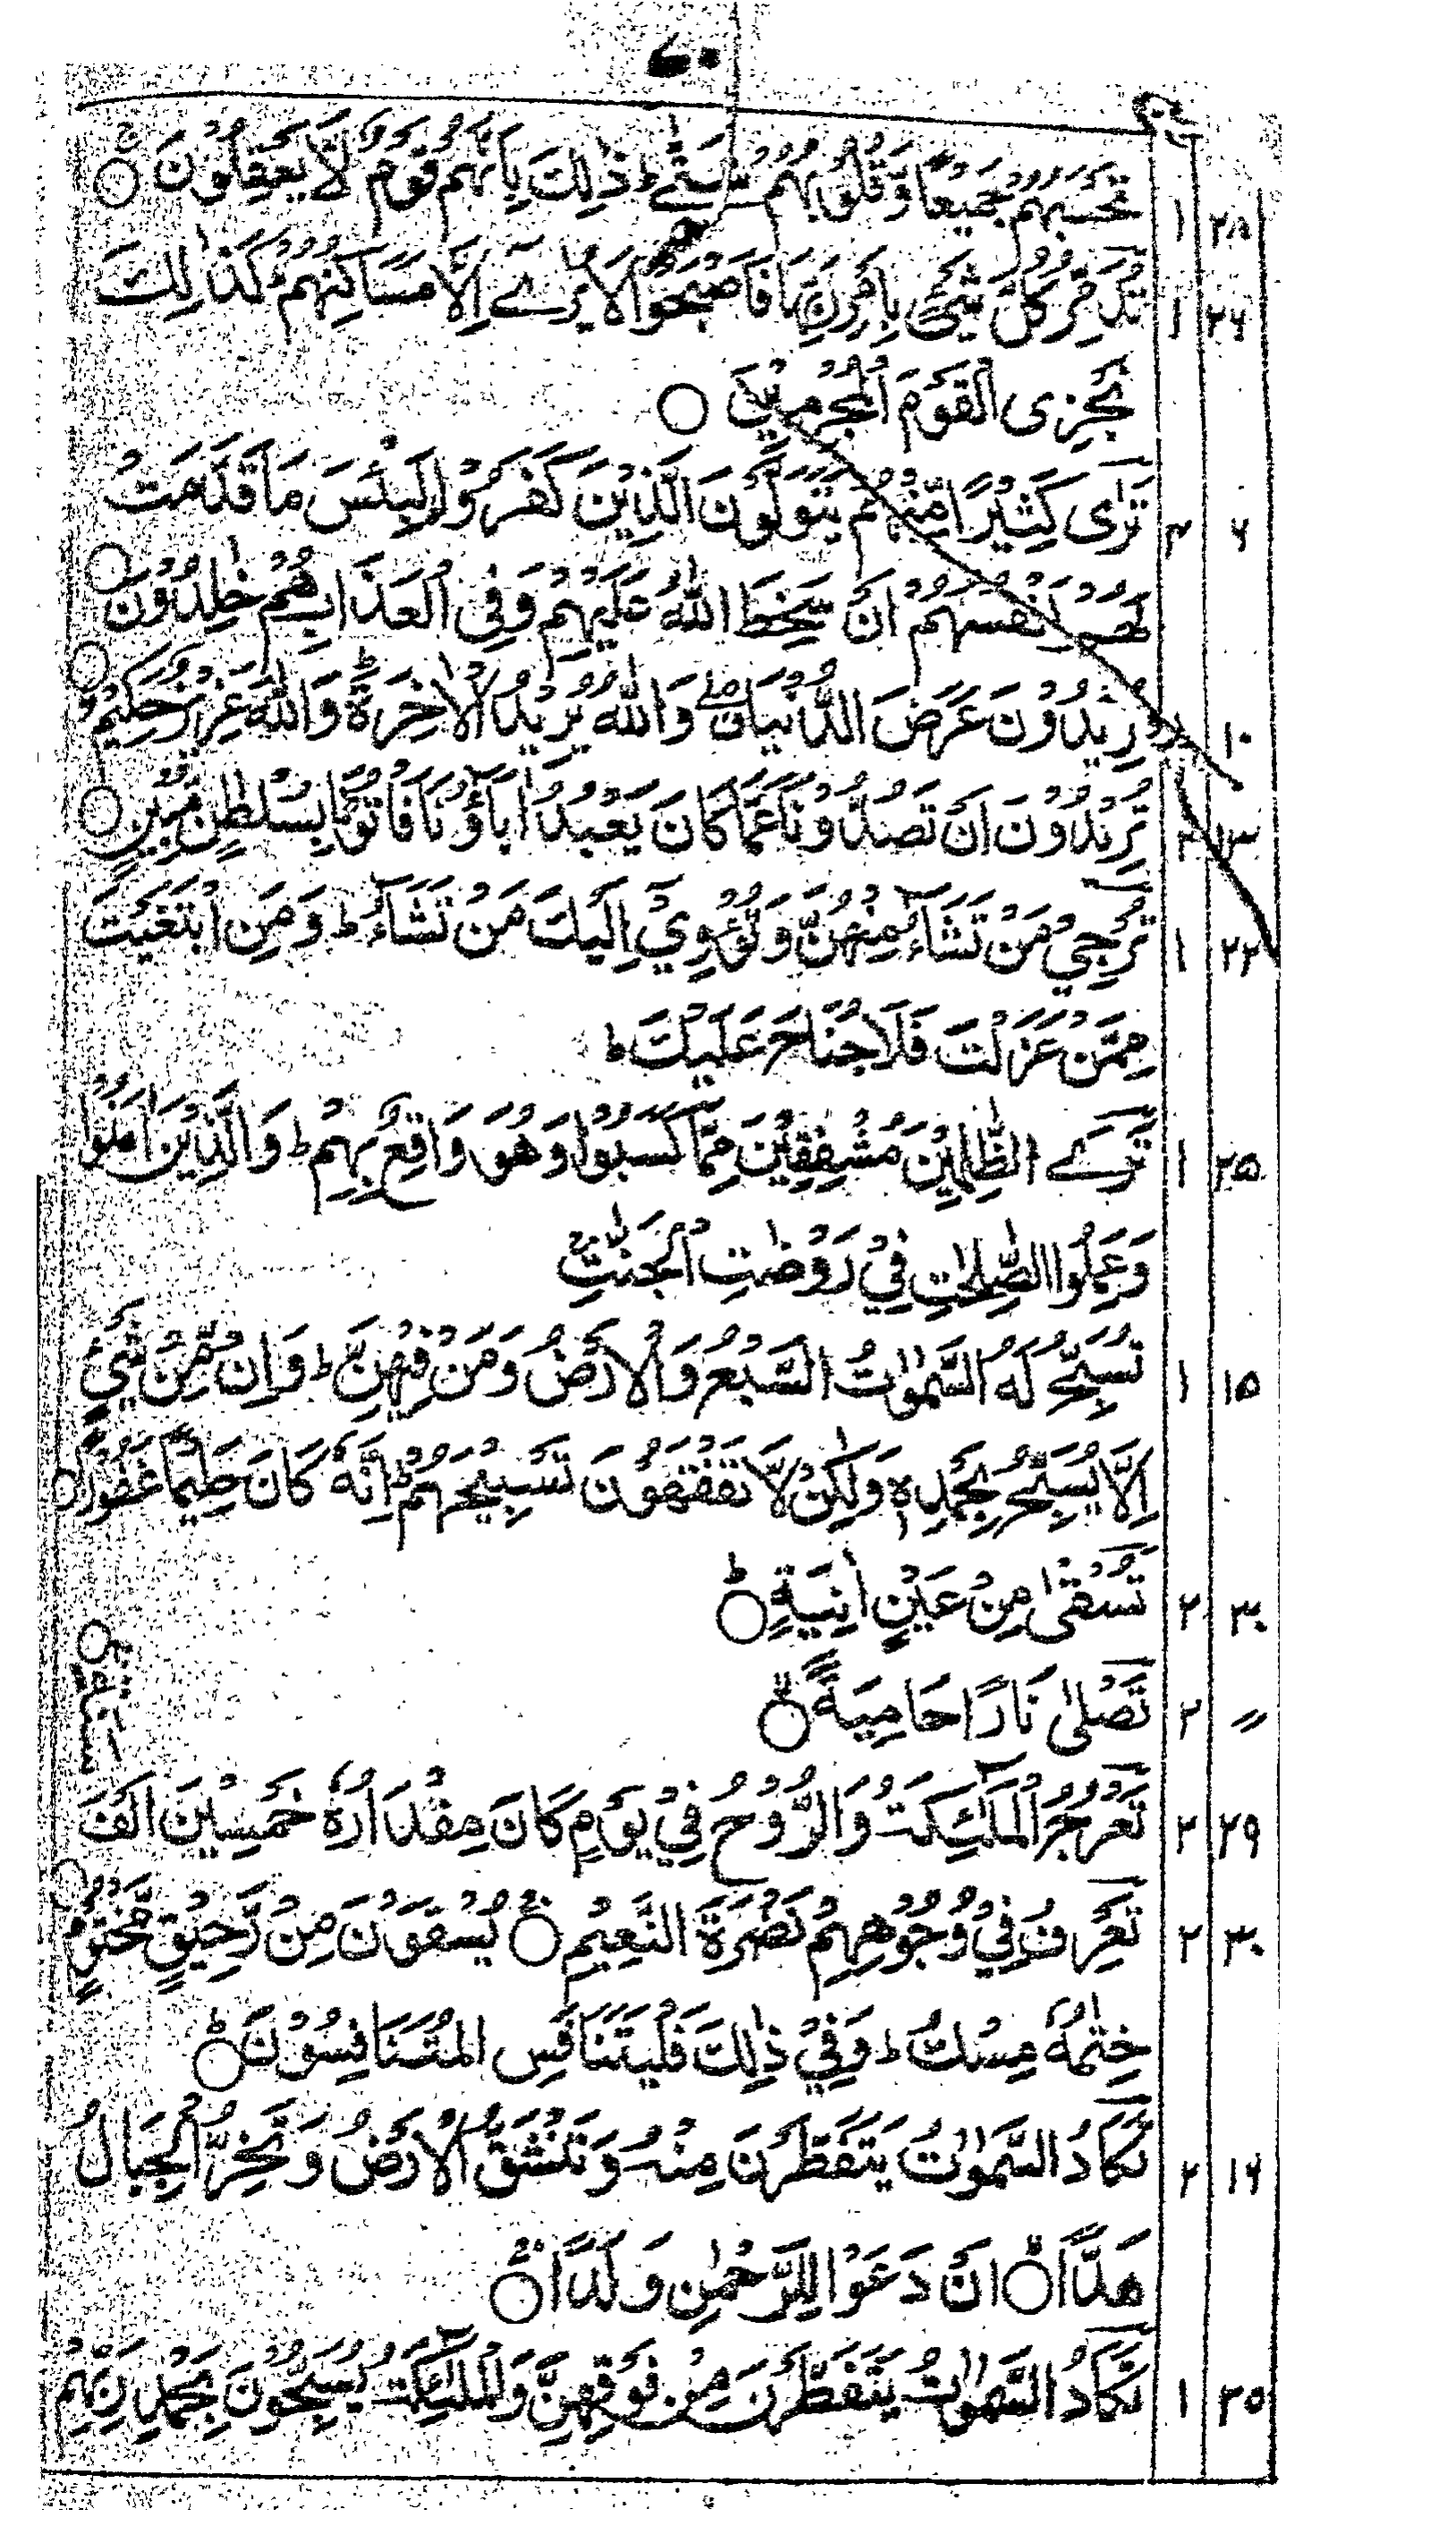 ۷۰
ت
۲۸ ۱ تَحْسَبُهُمْ جَمِيْعًا وَّقُلُوْبُهُمْ شَتّٰى ط ذٰلِكَ بِاَنَّهُمْ قَوْمٌ لَّا يَعْقِلُوْنَ ○
۲۶ ۱ تُدَمِّرُ كُلَّ شَيْءٍ بِاَمْرِ رَبِّهَا فَاَصْبَحُوْا لَا يُرٰۤے اِلَّا مَسَاكِنُهُمْ ط كَذٰلِكَ
نَجْزِى الْقَوْمَ الْمُجْرِمِيْنَ ○
۶ ۳ تَرٰى كَثِيْرًا مِّنْهُمْ يَتَوَلَّوْنَ الَّذِيْنَ كَفَرُوْا ط لَبِئْسَ مَا قَدَّمَتْ
لَهُمْ اَنْفُسُهُمْ اَنْ سَخِطَ اللّٰهُ عَلَيْهِمْ وَفِى الْعَذَابِ هُمْ خٰلِدُوْنَ ○
۱۰ تُرِيْدُوْنَ عَرَضَ الدُّنْيَا ق صلے وَاللّٰهُ يُرِيْدُ الْاٰخِرَةَ ط وَاللّٰهُ عَزِيْزٌ حَكِيْمٌ ○
۱۳ ۲ تُرِيْدُوْنَ اَنْ تَصُدُّوْنَا عَمَّا كَانَ يَعْبُدُ اٰبَآؤُنَا فَاْتُوْنَا بِسُلْطٰنٍ مُّبِيْنٍ ○
۲۲ ۱ تُرْجِيْ مَنْ تَشَآءُ مِنْهُنَّ وَتُؤْوِيْۤ اِلَيْكَ مَنْ تَشَآءُ ط وَمَنِ ابْتَغَيْتَ
مِمَّنْ عَزَلْتَ فَلَا جُنَاحَ عَلَيْكَ ط
۲۵ ۱ تَرَے الظّٰلِمِيْنَ مُشْفِقِيْنَ مِمَّا كَسَبُوْا وَهُوَ وَاقِعٌۢ بِهِمْ ط وَالَّذِيْنَ اٰمَنُوْا
وَعَمِلُوا الصّٰلِحٰتِ فِيْ رَوْضٰتِ الْجَنّٰتِ ج
۱۵ ۱ تُسَبِّحُ لَهُ السَّمٰوٰتُ السَّبْعُ وَالْاَرْضُ وَمَنْ فِيْهِنَّ ط وَاِنْ مِّنْ شَيْءٍ
اِلَّا يُسَبِّحُ بِحَمْدِهٖ وَلٰكِنْ لَّا تَفْقَهُوْنَ تَسْبِيْحَهُمْ ط اِنَّهٗ كَانَ حَلِيْمًا غَفُوْرًا ○
۳۰ ۲ تُسْقٰى مِنْ عَيْنٍ اٰنِيَةٍ ط ○
〃 ۲ تَصْلٰى نَارًا حَامِيَةً ○
۲۹ ۲ تَعْرُجُ الْمَلٰٓئِكَةُ وَالرُّوْحُ فِيْ يَوْمٍ كَانَ مِقْدَارُهٗ خَمْسِيْنَ اَلْفَ
۳۰ ۲ تَعْرِفُ فِيْ وُجُوْهِهِمْ نَضْرَةَ النَّعِيْمِ ○ يُسْقَوْنَ مِنْ رَّحِيْقٍ مَّخْتُوْمٍ ○
خِتٰمُهٗ مِسْكٌ ط وَفِيْ ذٰلِكَ فَلْيَتَنَافَسِ الْمُتَنَافِسُوْنَ ط ○
۱۶ ۲ تَكَادُ السَّمٰوٰتُ يَتَفَطَّرْنَ مِنْهُ وَتَنْشَقُّ الْاَرْضُ وَتَخِرُّ الْجِبَالُ
هَدًّا ○ اَنْ دَعَوْا لِلرَّحْمٰنِ وَلَدًا ○
۲۵ ۱ تَكَادُ السَّمٰوٰتُ يَتَفَطَّرْنَ مِنْ فَوْقِهِنَّ وَالْمَلٰٓئِكَةُ يُسَبِّحُوْنَ بِحَمْدِ رَبِّهِمْ